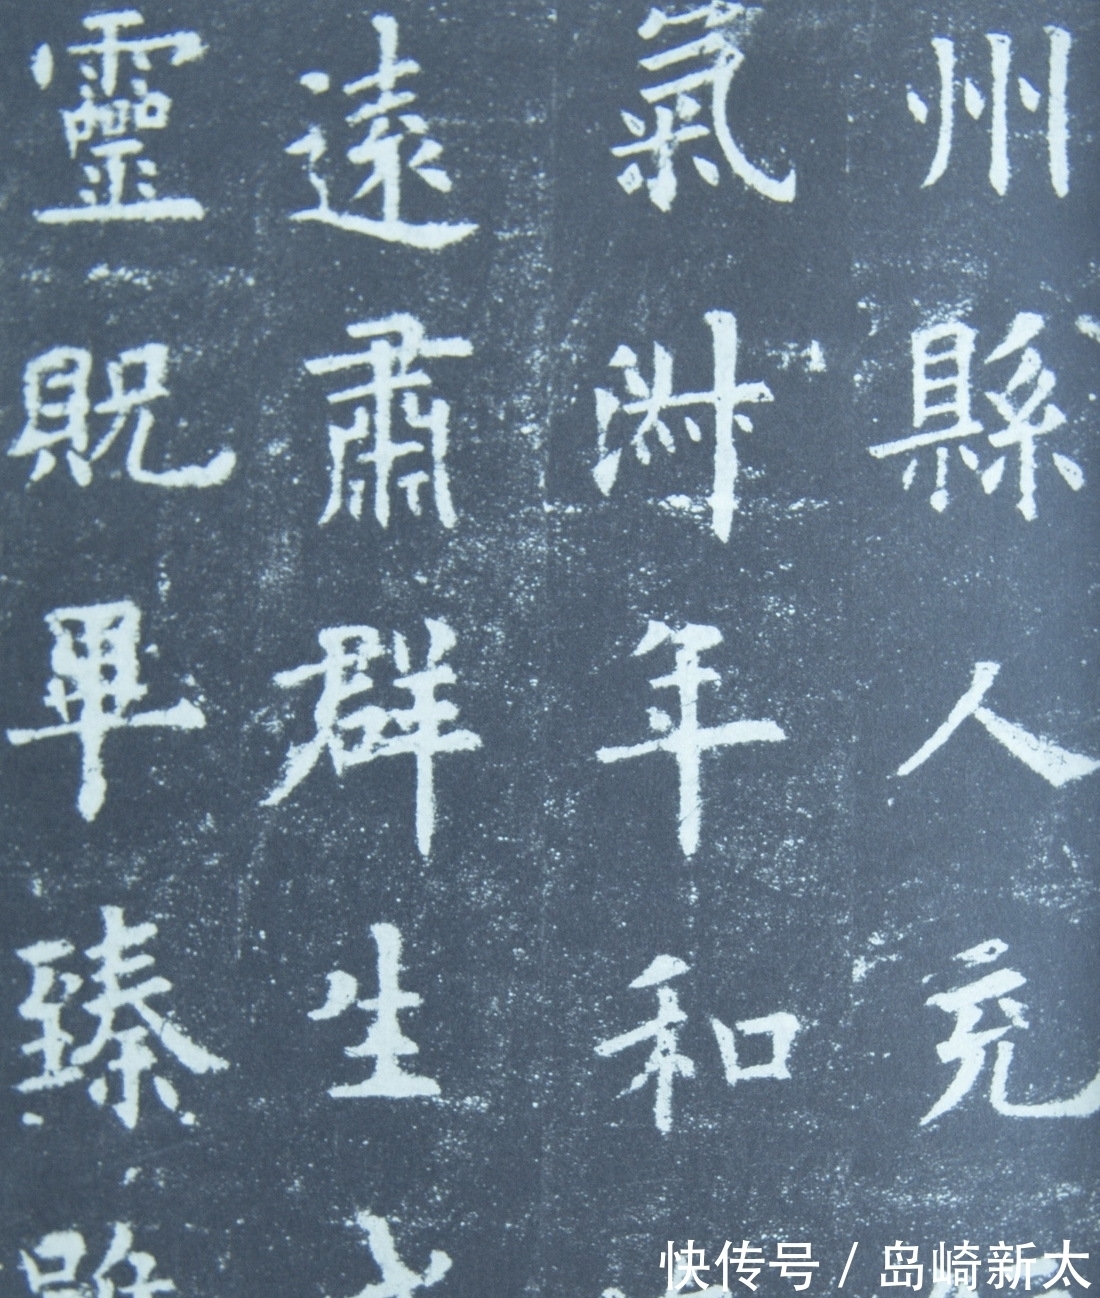 州縣人充
氣淑年和
遠肅群生
靈貺畢臻
快传号 / 岛崎新太